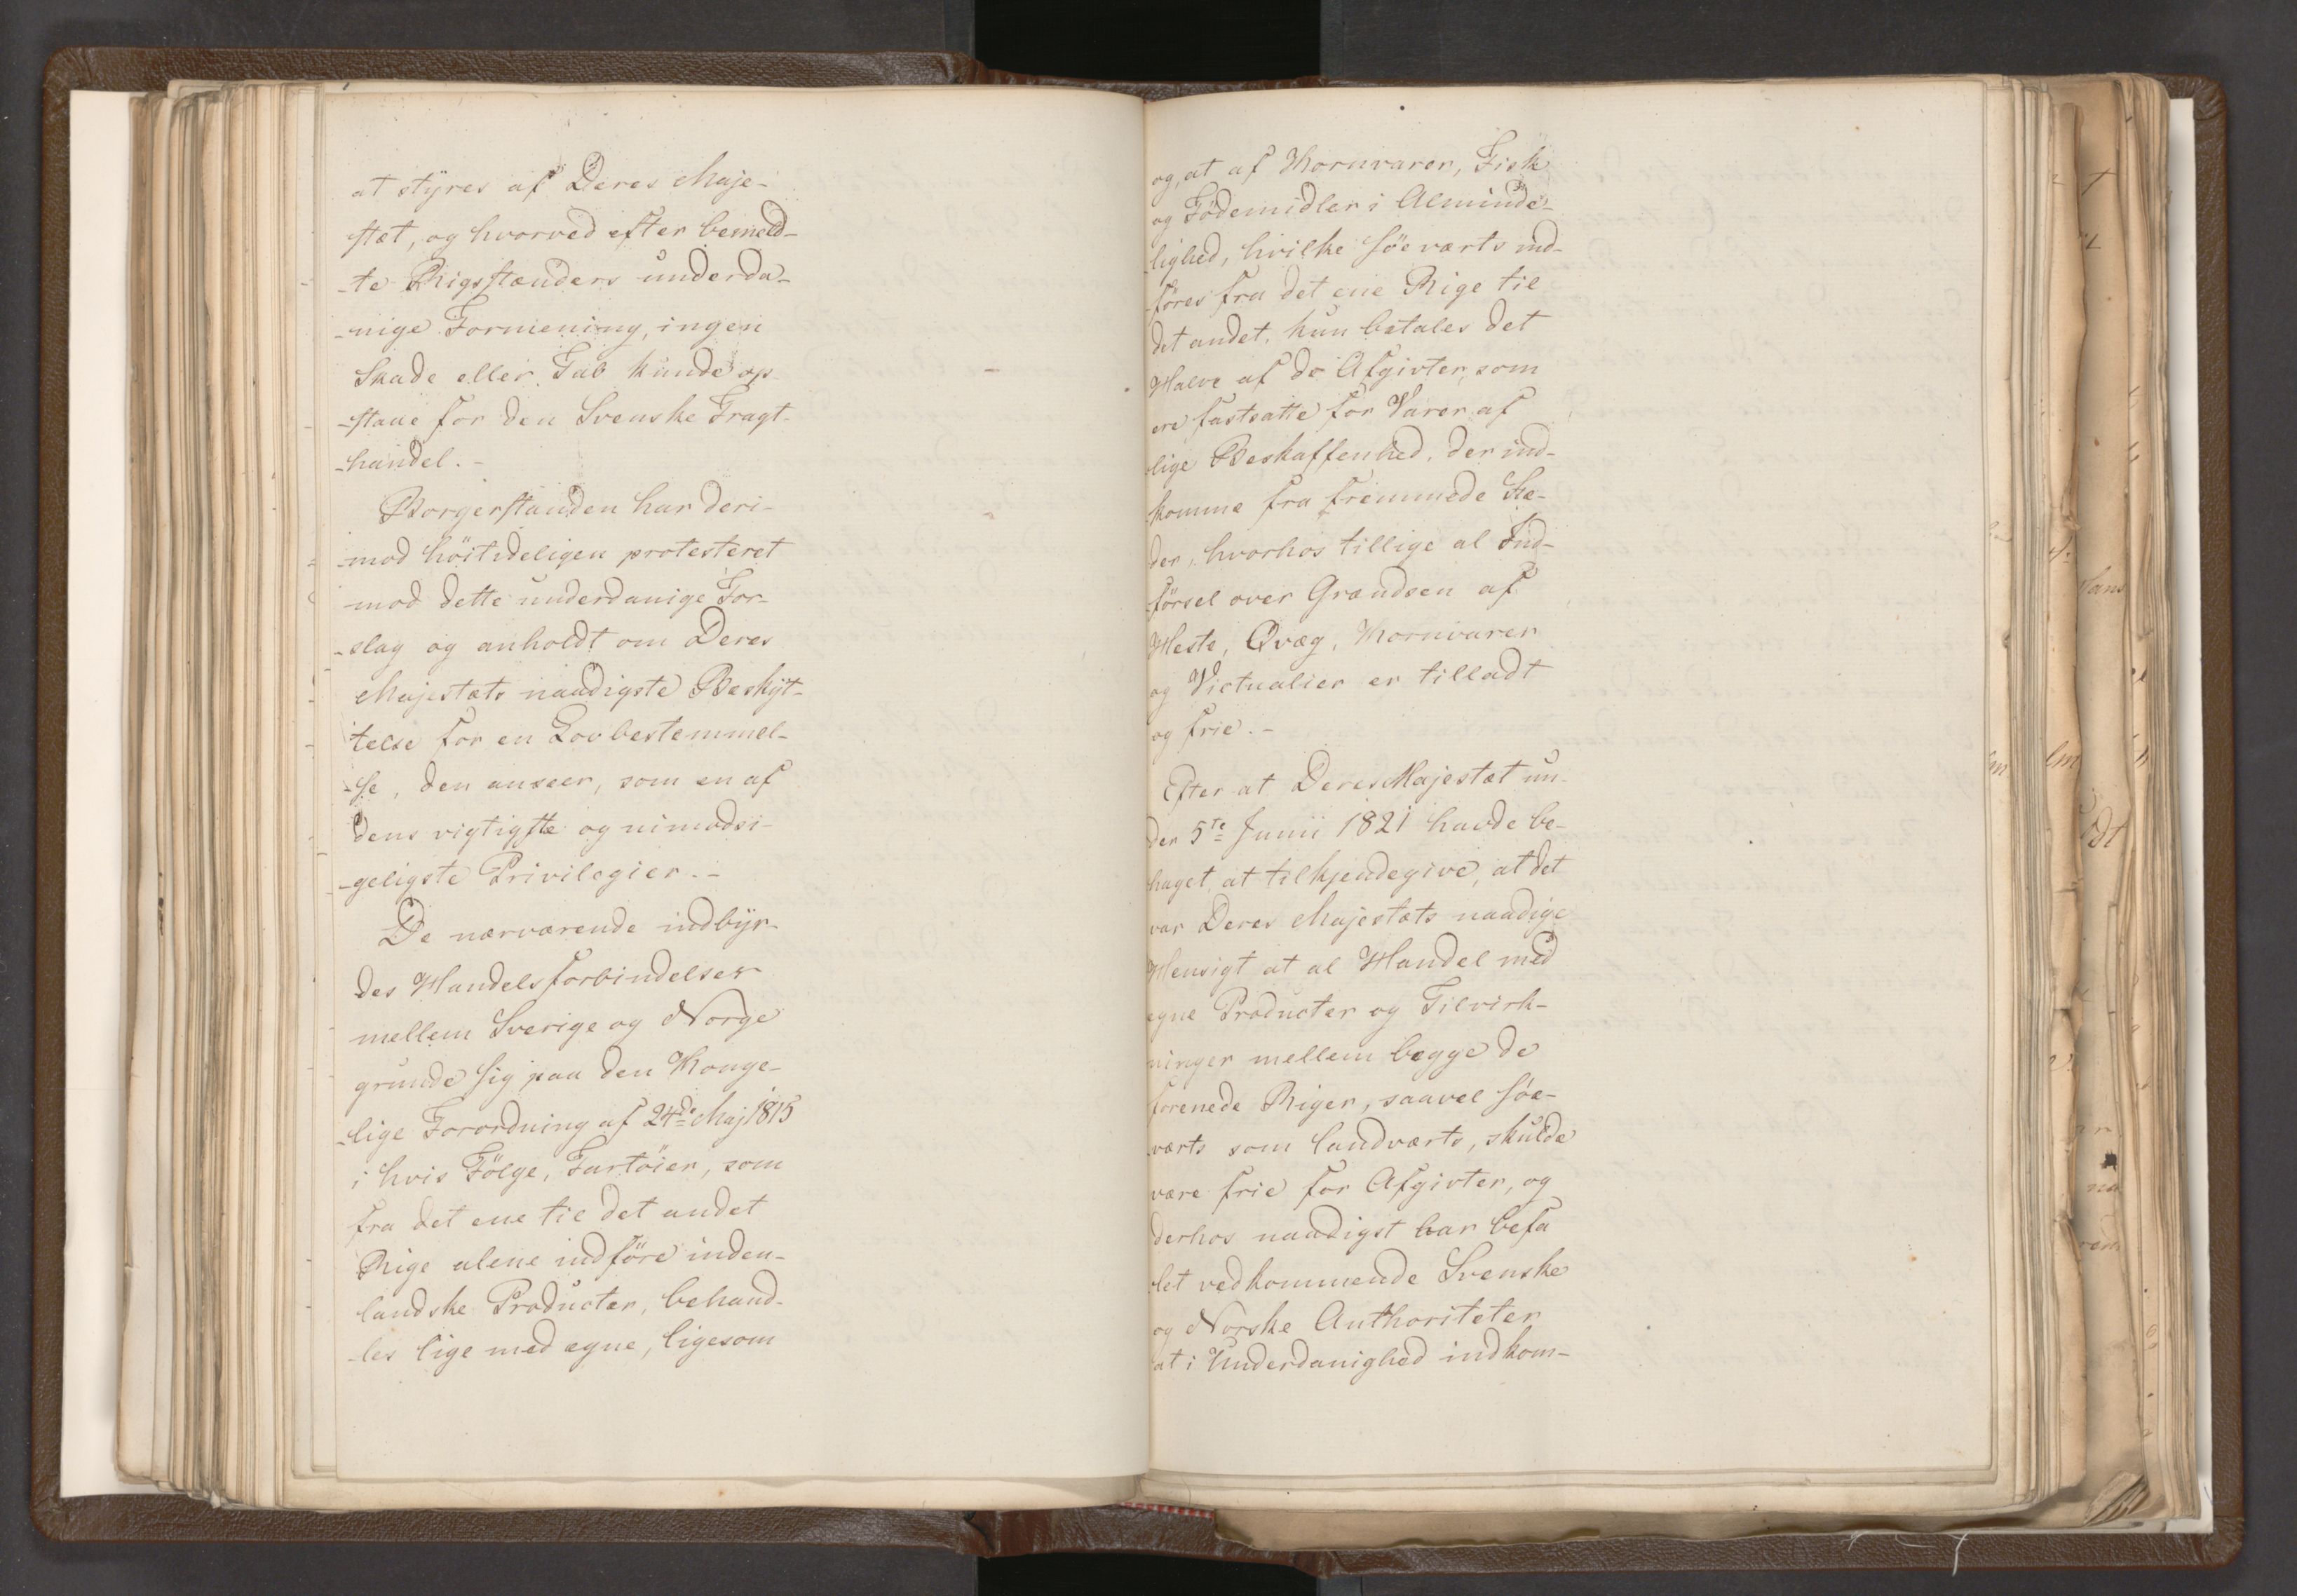 at styres af Deres Maje-
stæt, og hvorved efter bemeld-
-te Rigsstænders underda-
-nige Formening, ingen
Skade eller Tab kunde op-
-staae for den Svenske Fragt-
-handel. -
Borgerstanden har deri-
-mod höitideligen protesteret
mod dette underdanige For-
-slag og anholdt om Deres
Majestæts naadigste Beskyt-
telse for en Lovbestemmel-
-se, den anseer, som en af
dens vigtigste og uimodsi-
-geligste Privilegier. -
De nærværende indbyr-
des Handelsforbindelser
mellem Sverige og Norge
grunde sig paa den Konge-
-lige Forordning af 24de Maj 1815
i hvis Fölge, Fartöier, som
fra det ene til det andet
Rige alene indföre inden-
landske Producter, behand-
-les lige med egne, ligesom
og, at af Kornvarer, Fisk
og Födemidler i Alminde-
-lighed, hvilke söeværts ind-
-föres fra det ene Rige til
det andet, kun betales det
Halve af de Afgivter, som
ere fastsatte for Varer af
lige Beskaffenhed, der ind-
-komme fra fremmede Ste-
der, hvorhos tillige al Ind-
-försel over Grændsen af
Heste, Qvæg, Kornvarer
og Victualier er tilladt
og frie. -
Efter at Deres Majestæt un-
der 5te Junii 1821 havde be-
haget at tilkjendegive, at det
var Deres Majestæts naadige
Hensigt at al Handel med
egne Producter og Tilvirk-
ninger mellem begge de
forenede Riger, saavel söe-
-værts som landværts, skulde
være frie for Afgivter, og
derhos naadigst har befa
let vedkommende Svenske
og Norske Authoriteter
at i Underdanighed indkom-